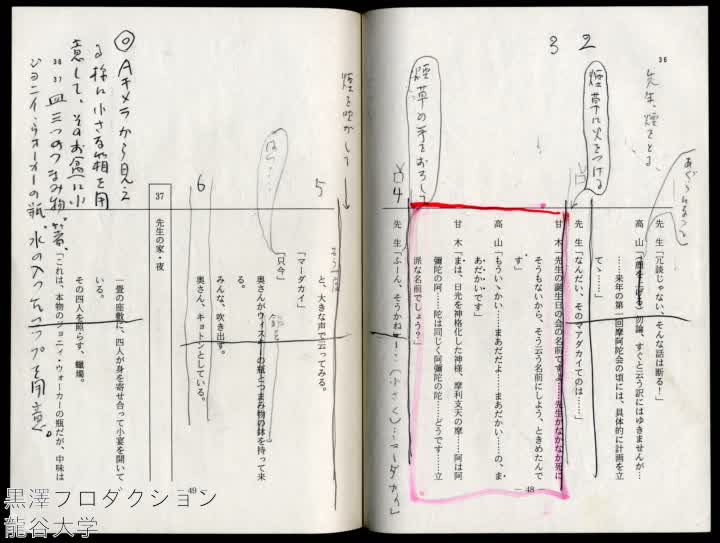 36
先生、煙をとる、
先　生「冗談じゃない、そんな話は断る！」
高　山「勿論、すぐと云う訳にはゆきませんが…
…来年の第一回摩阿陀会の頃には、具体的に計画を立
てゝ……」
2
煙草に火をつける
先　生「なんだい、そのマアダカイてのは……」
3
甘　木「先生の誕生日の会の名前ですよ……先生がなかなか死に
そうもないから、そう云う名前にしよう、ときめたんで
す」
高　山「もういゝかい……まあだだよ……まあだかい……の、ま
あだかいです」
甘　木「まは、日光を神格化した神様、摩利支天の摩……阿は阿
彌陀の阿……陀は同じく阿彌陀の陀……どうです……立
派な名前でしょう？」
煙草の手をおろして
4
先　生「ふーん、そうかね
― 48 ―
煙を吹かして
5
と、大きな声で云ってみる。
「マーダカイ」
「只今」
奥さんがウィスキーの瓶とつまみ物の鉢を持って来
る。
みんな、吹き出す。
6
奥さん、キョトンとしている。
37　先生の家・夜
一畳の座敷に、四人が身を寄せ合って小宴を開いて
いる。
その四人を照らす、蠟燭。
「これは、本物のジョニィ・ウォーカーの瓶だが、中味は
― 49 ―
◎Aキメラから見え
る様に小さな箱を用
意して、そのお盆に小
36
37
皿三つのつまみ物。箸、
ジョニイ・ウォーカーの瓶。水の入ったコップを用意。
黒澤プロダクション
龍谷大学